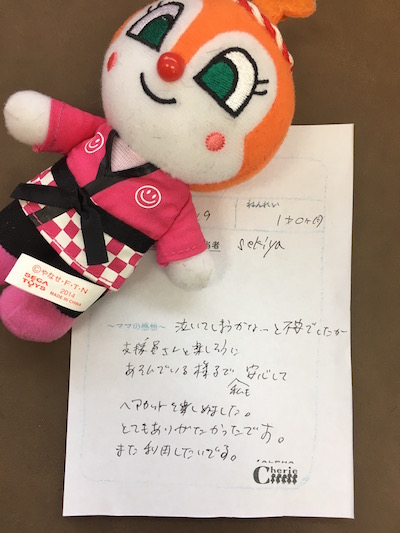 ねんれい
9
1才0ヶ月
当者
sekiya
©やなせ・F・T・N
SEGA
TOYS
2014
MADE IN CHINA
～ママの感想～
泣いてしまうかな…と不安でしたが
支援員さんと楽しそうに
あそんでいる様子で 安心して
私も
ヘアカットを楽しめました。
とてもありがたかったです。
また利用したいです。
ALPHA
Cherie